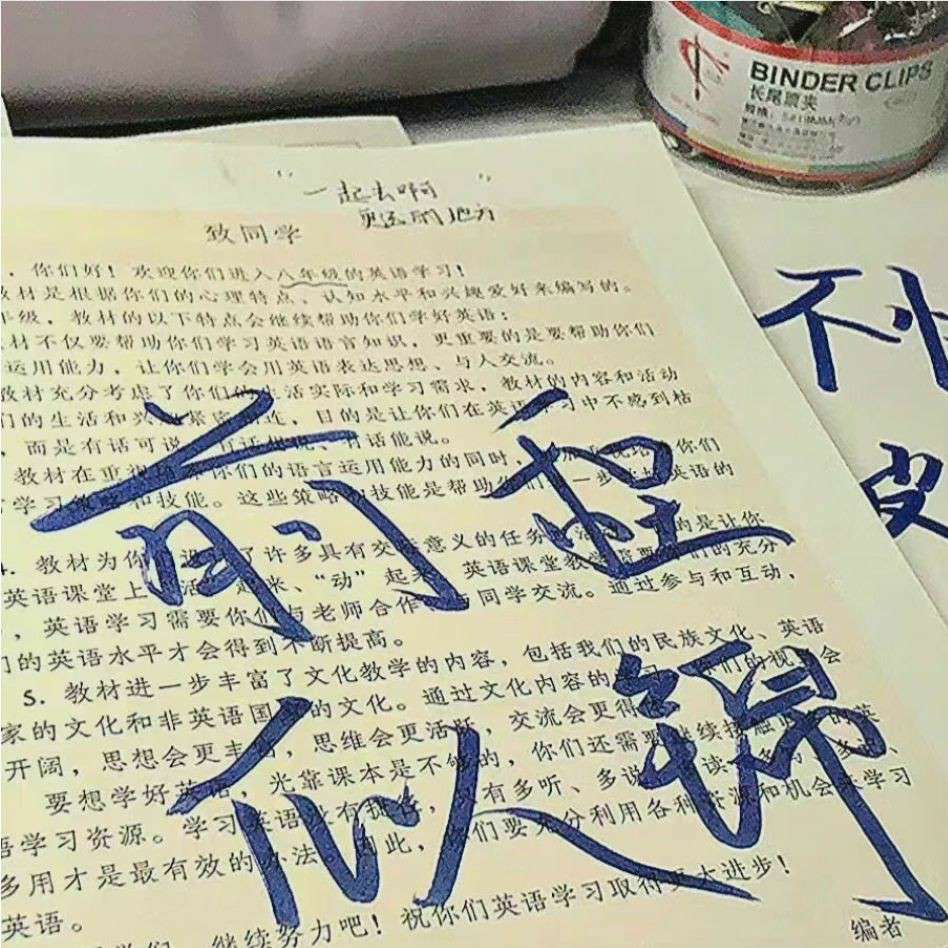 BINDER CLIPS
长尾票夹
"一起去啊
更远的地方"
致同学
你们好！欢迎你们进入八年级的英语学习！
教材是根据你们的心理特点、认知水平和兴趣爱好来编写的。
年级，教材的以下特点会继续帮助你们学好英语：
材不仅要帮助你们学习英语语言知识，更重要的是要帮助你们
运用能力，让你们学会用英语表达思想、与人交流。
教材充分考虑了你们的生活实际和学习需求，教材的内容和活动
们的生活和兴 紧密 连，目的是让你们在英语学习中不感到枯
，而是有话可说、有话想说、有话能说。
教材在重视 你们的语言运用能力的同时， 你们
学习策略和技能。这些策略和技能是帮助你们 一步 英语的
4. 教材为你 设 了许多具有交际意义的任务 活 的是让你
英语课堂上"活"起来、"动"起来。英语课堂教学需要 们的充分
，英语学习需要你们与老师合作 同学交流。通过参与和互动，
们的英语水平才会得到不断提高。
5. 教材进一步丰富了文化教学的内容，包括我们的民族文化、英语
家的文化和非英语国家的文化。通过文化内容的 们的视 会
开阔，思想会更丰富，思维会更活跃，交流会更得
要想学好英语，光靠课本是不够的，你们还需要继续接触 的英
语学习资源。学习英语没有捷径， 有多听、多说 读
多用才是最有效的办法。因此，你们要充分利用各种资源和机会来学习
英语。
继续努力吧！祝你们英语学习取得更大进步！
编者
前程
似锦
不